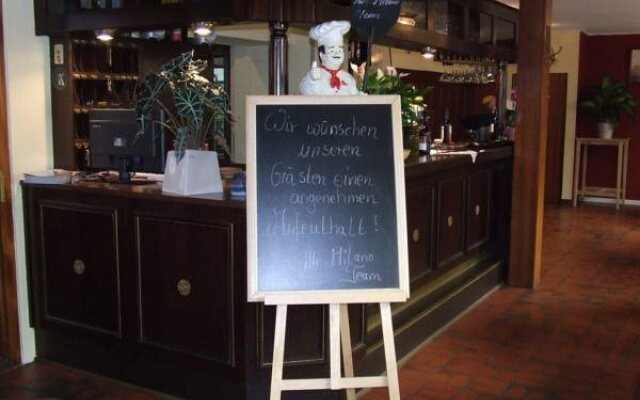 Wir wünschen
unseren
Gästen einen
angenehmen
Aufenthalt!
Milano
Team